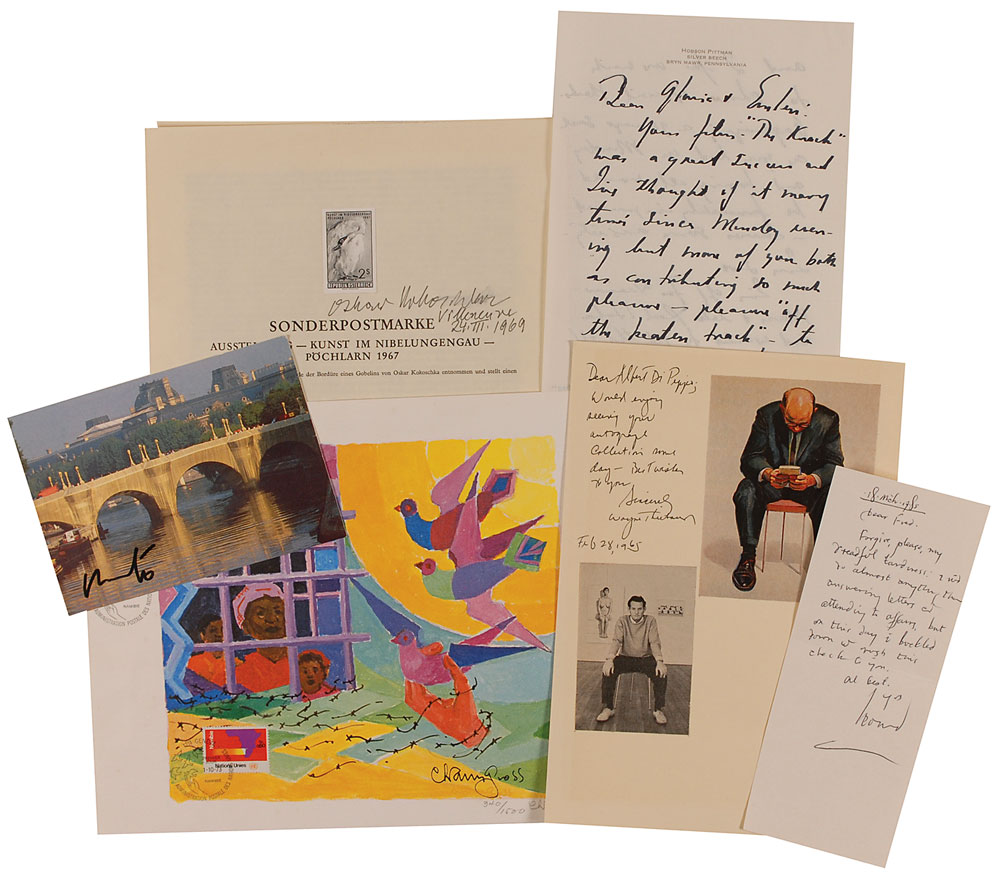 HOBSON PITTMAN
SILVER BEECH
BRYN MAWR, PENNSYLVANIA
Dear Gloria & Emlen:
Your film "The Knack"
was a great success and
I've thought of it many
times since Monday even-
ing but more of you both
as contributing so much
pleasure — pleasure "off
the beaten track" – to
2s
REPUBLIK ÖSTERREICH
Oskar Kokoschka
Villeneuve
24.III.1969
SONDERPOSTMARKE
— KUNST IM NIBELUNGENGAU —
PÖCHLARN 1967
de der Bordüre eines Gobelins von Oskar Kokoschka entnommen und stellt einen
Dear Albert Di
Would enjoy
seeing your
autograph
Collection some
day – Best wishes
to you,
Sincerely
Wayne Thiebaud
Feb 28, 1965
18. Mch. 1985
Dear Fred.
Forgive, please, my
dreadful tardiness; I
do almost anything than
answering letters or
attending to affairs, but
on this day I buckled
down & with this
check to you.
all best.
ADMINISTRATION POSTALE DES
Namibie
Nations Unies
1-10-73
Chaim Gross
340/1500